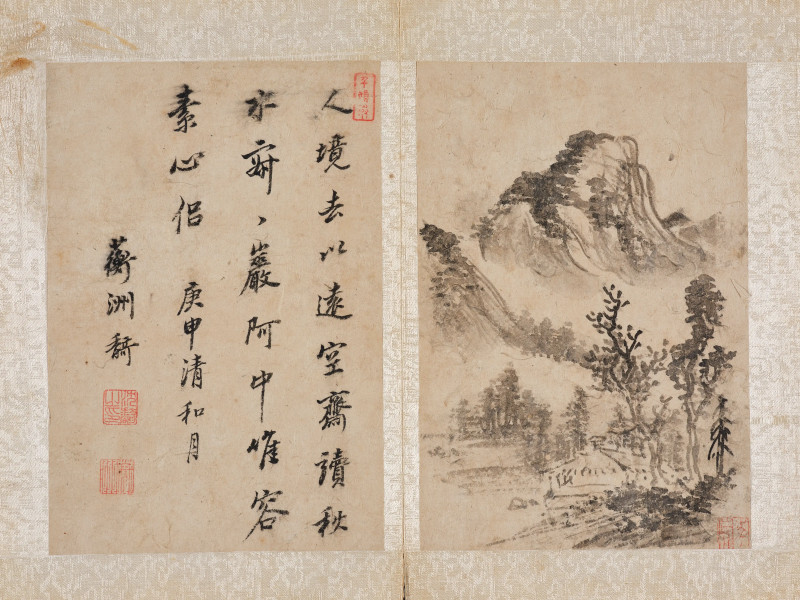 人境去以遠空齋讀秋
水寂、巖阿中惟容
素心侶 庚申清和月
蘅洲